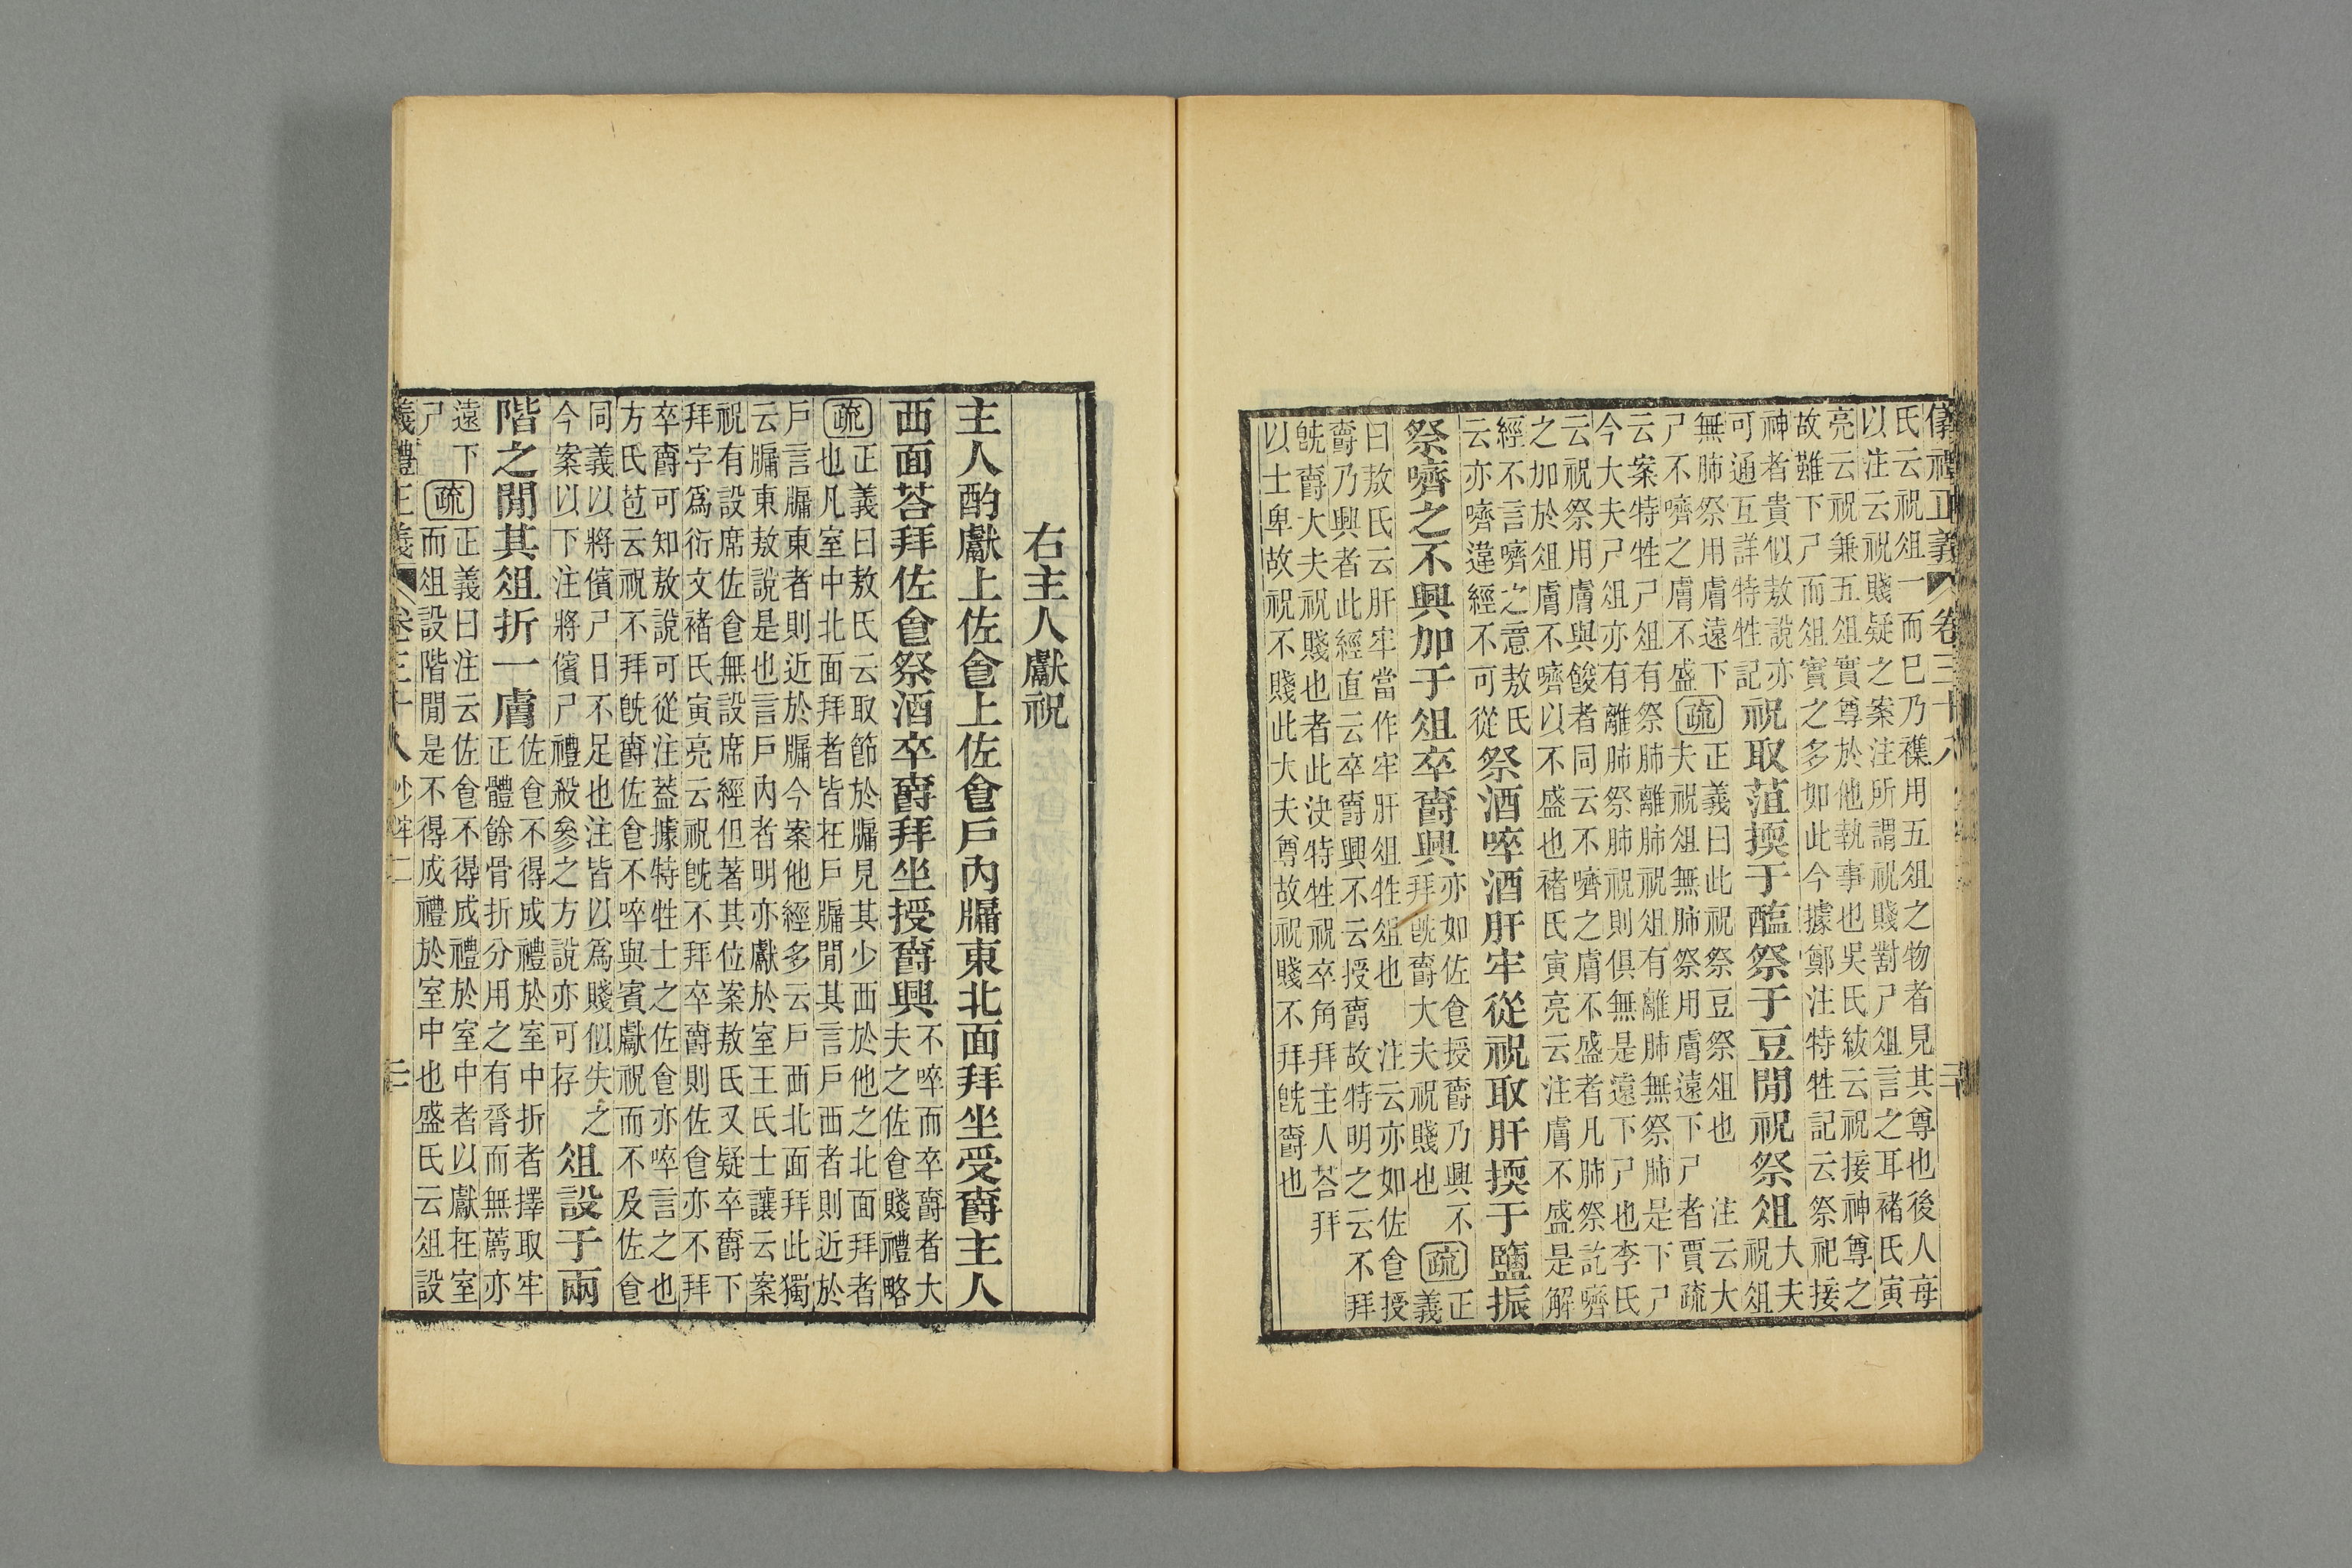 儀禮正義 卷三十八
氏云祝俎一而已乃襍用五俎之物者見其尊也後人毋
以注云祝賤疑之案注所謂祝賤對尸俎言之耳褚氏寅
亮云祝兼五俎實尊於他執事也吳氏紱云祝接神尊之
故雖下尸而俎實之多如此今據鄭注特牲記云祭祀接
神者貴似敖說亦
可通互詳特牲記
祝取菹㨎于醢祭于豆閒祝祭俎
大夫
祝俎
無肺祭用膚遠下
尸不嚌之膚不盛
疏
正義曰此祝祭豆祭俎也 注云大
夫祝俎無肺祭用膚遠下尸者賈疏
云案特牲尸俎有祭肺離肺祝俎有離肺無祭肺是下尸
今大夫尸俎亦有離肺祭肺祝則俱無是遠下尸也李氏
云祝祭用膚與餕者同云不嚌之膚不盛者凡肺祭訖嚌
之加於俎膚不嚌以不盛也褚氏寅亮云注膚不盛是解
經不言嚌之意敖氏
云亦嚌違經不可從
祭酒啐酒肝牢從祝取肝㨎于鹽振
祭嚌之不興加于俎卒爵興
亦如佐食授爵乃興不
拜旣爵大夫祝賤也
疏
正
義
曰敖氏云肝牢當作牢肝俎牲俎也 注云亦如佐食授
爵乃興者此經直云卒爵興不云授爵故特明之云不拜
旣爵大夫祝賤也者此決特牲祝卒角拜主人荅拜
以士卑故祝不賤此大夫尊故祝賤不拜旣爵也
右主人獻祝
主人酌獻上佐食上佐食戶內牖東北面拜坐受爵主人
西面荅拜佐食祭酒卒爵拜坐授爵興
不啐而卒爵者大
夫之佐食賤禮略
疏
正義曰敖氏云取節於牖見其少西於他之北面拜者
也凡室中北面拜者皆在戶牖閒其言戶西者則近於
戶言牖東者則近於牖今案他經多云戶西北面拜此獨
云牖東敖說是也言戶內者明亦獻於室王氏士讓云案
祝有設席佐食無設席經但著其位案敖氏又疑卒爵下
拜字爲衍文褚氏寅亮云祝旣不拜卒爵則佐食亦不拜
卒爵可知敖說可從注蓋據特牲士之佐食亦啐言之也
方氏苞云祝不拜旣爵佐食不啐與賓獻祝而不及佐食
同義以將儐尸日不足也注皆以爲賤似失之
今案以下注將儐尸禮殺參之方說亦可存
俎設于兩
階之閒其俎折一膚
佐食不得成禮於室中折者擇取牢
正體餘骨折分用之有脀而無薦亦
遠下
尸
疏
正義曰注云佐食不得成禮於室中者以獻在室
而俎設階閒是不得成禮於室中也盛氏云俎設